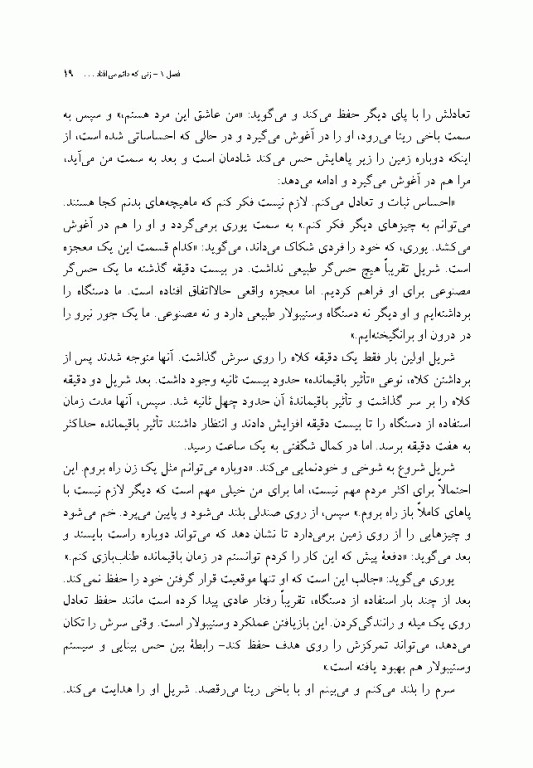 فصل ۱ – زنی که دائم می‌افتاد . . . ۱۹
تعادلش را با پای دیگر حفظ می‌کند و می‌گوید: «من عاشق این مرد هستم،» و سپس به
سمت باخی ریتا می‌رود، او را در آغوش می‌گیرد و در حالی که احساساتی شده است، از
اینکه دوباره زمین را زیر پاهایش حس می‌کند شادمان است و بعد به سمت من می‌آید،
مرا هم در آغوش می‌گیرد و ادامه می‌دهد:
«احساس ثبات و تعادل می‌کنم. لازم نیست فکر کنم که ماهیچه‌های بدنم کجا هستند.
می‌توانم به چیزهای دیگر فکر کنم.» به سمت یوری برمی‌گردد و او را هم در آغوش
می‌کشد. یوری، که خود را فردی شکاک می‌داند، می‌گوید: «کدام قسمت این یک معجزه
است. شریل تقریباً هیچ حس‌گر طبیعی نداشت. در بیست دقیقه گذشته ما یک حس‌گر
مصنوعی برای او فراهم کردیم. اما معجزه واقعی حالااتفاق افتاده است. ما دستگاه را
برداشته‌ایم و او دیگر نه دستگاه وستیبولار طبیعی دارد و نه مصنوعی. ما یک جور نیرو را
در درون او برانگیخته‌ایم.»
شریل اولین بار فقط یک دقیقه کلاه را روی سرش گذاشت. آنها متوجه شدند پس از
برداشتن کلاه، نوعی «تأثیر باقیمانده» حدود بیست ثانیه وجود داشت. بعد شریل دو دقیقه
کلاه را بر سر گذاشت و تأثیر باقیماندهٔ آن حدود چهل ثانیه شد. سپس، آنها مدت زمان
استفاده از دستگاه را تا بیست دقیقه افزایش دادند و انتظار داشتند تأثیر باقیمانده حداکثر
به هفت دقیقه برسد. اما در کمال شگفتی به یک ساعت رسید.
شریل شروع به شوخی و خودنمایی می‌کند. «دوباره می‌توانم مثل یک زن راه بروم. این
احتمالاً برای اکثر مردم مهم نیست، اما برای من خیلی مهم است که دیگر لازم نیست با
پاهای کاملاً باز راه بروم.» سپس، از روی صندلی بلند می‌شود و پایین می‌پرد. خم می‌شود
و چیزهایی را از روی زمین برمی‌دارد تا نشان دهد که می‌تواند دوباره راست بایستد و
بعد می‌گوید: «دفعهٔ پیش که این کار را کردم توانستم در زمان باقیمانده طناب‌بازی کنم.»
یوری می‌گوید: «جالب این است که او تنها موقعیت قرار گرفتن خود را حفظ نمی‌کند.
بعد از چند بار استفاده از دستگاه، تقریباً رفتار عادی پیدا کرده است مانند حفظ تعادل
روی یک میله و رانندگی‌کردن. این بازیافتن عملکرد وستیبولار است. وقتی سرش را تکان
می‌دهد، می‌تواند تمرکزش را روی هدف حفظ کند– رابطهٔ بین حس بینایی و سیستم
وستیبولار هم بهبود یافته است.»
سرم را بلند می‌کنم و می‌بینم او با باخی ریتا می‌رقصد. شریل او را هدایت می‌کند.